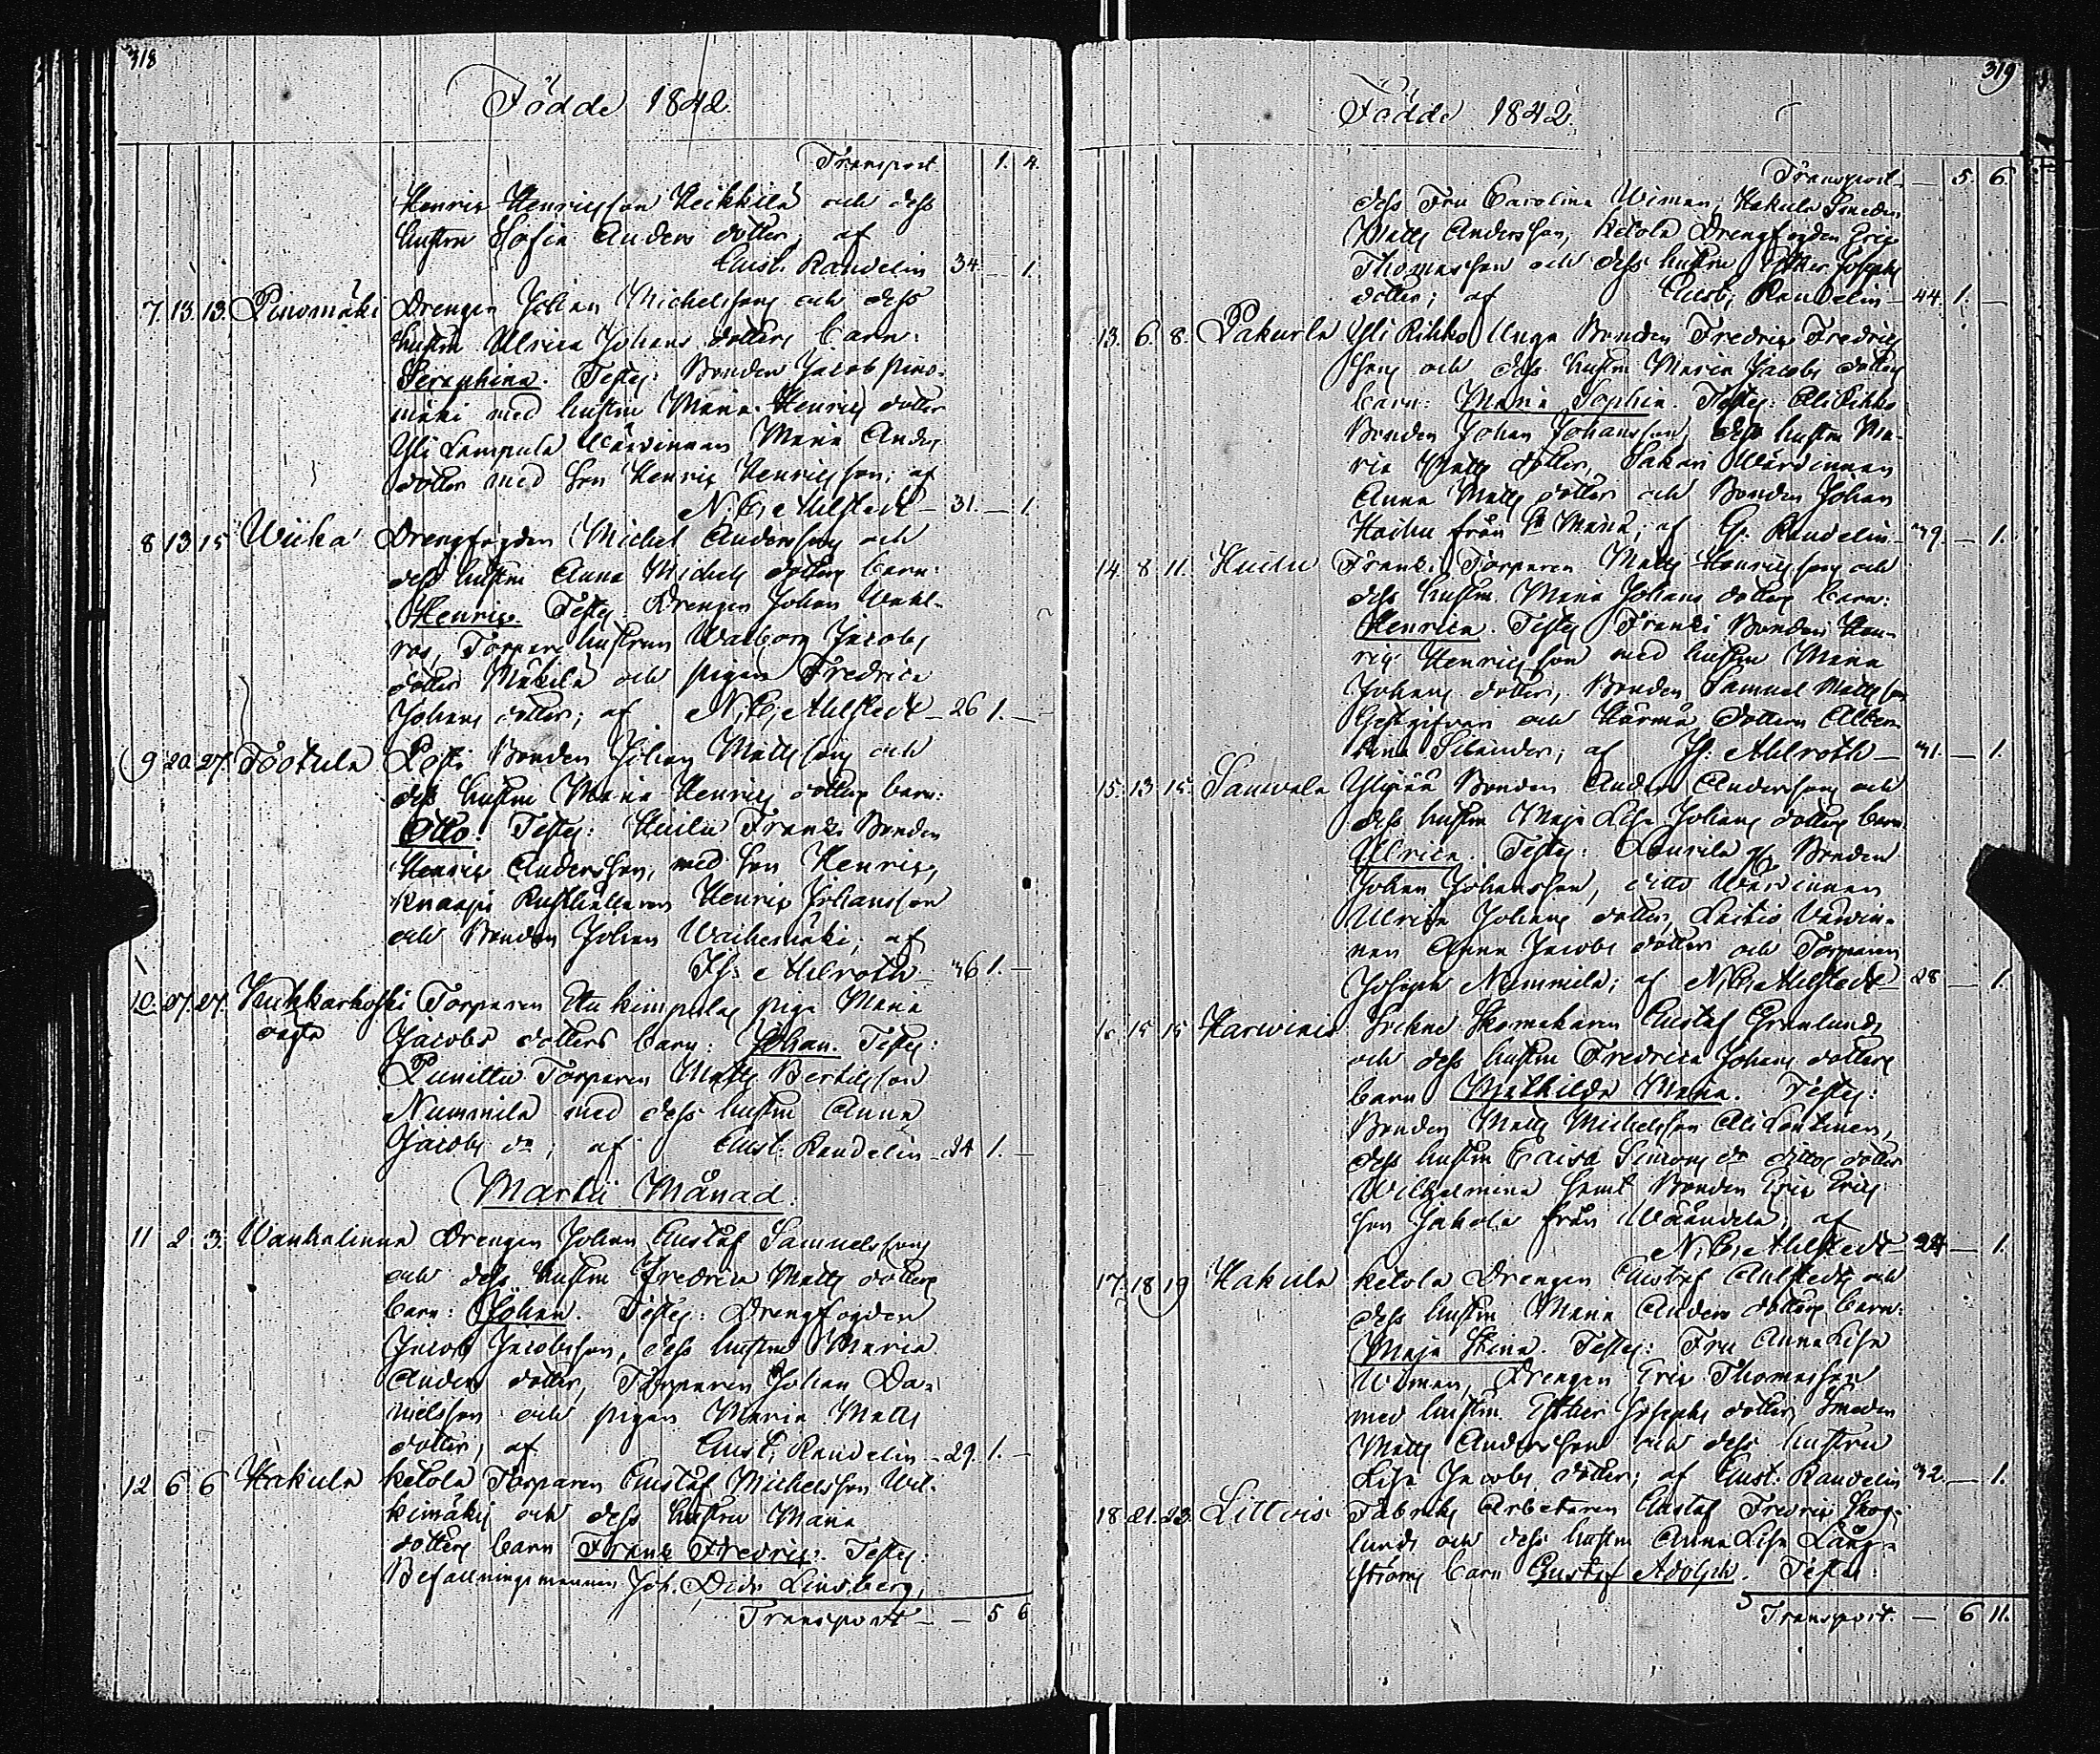 318
Födde 1842.
Transport 1. 4.
Henric Henricsson Heikkilä och dess
hustru Sofia Anders dotter; af
Gust. Randelin 34. — 1.
7. 13. 13. Pinomäki Drengen Johan Michelssons och dess
hustru Ulrica Johans dotters barn:
Seraphina. Testes: Bonden Jacob Pino-
mäki med hustru Maria Henrics dotter
Yli Lampula Värdinnan Maria Anders
dotter med son Henric Henricsson; af
N. G. Ahlstedt — 31. — 1.
8 13 15 Wiiha Drengfogden Michel Anderssons och
dess hustru Anna Michels dotters barn:
Henric. Testes: Drengen Johan Wahl-
ros, Torpare hustrun Walborg Jacobs
dotter Mäkilä och pigan Fredrica
Johans dotter; af N. G. Ahlstedt — 26 1. —
9 20 27. Tootula Posti Bonden Johan Mattssons och
dess hustru Maria Henrics dotters barn:
Otto. Testes: Huilu Franzi Bonden
Henric Andersson, med son Henric,
Knaapi Rusthållaren Henric Johansson
och Bonden Johan Waihemäki; af
Jh: Ahlroth — 36 1. —
10. 27. 27. Kukkarkoski Torparen Ala kimpales piga Maria
Jacobs dotters barn: Johan. Testes:
Punittu Torparen Matts Bertilsson
Nummila med dess hustru Anna
Jacobs dr; af Gust. Randelin — 24 1. —
Martii Månad.
11 2 3. Wankalinna Drengen Johan Gustaf Samuelssons
och dess hustru Fredrica Matts dotters
barn: Johan. Testes: Drengfogden
Jacob Jacobsson, dess hustru Maria
Anders dotter, Torparen Johan Da-
nielsson och pigan Maria Matts
dotter; af Gust. Randelin — 29. 1. —
12 6 6 Hakula Ketola Torparen Gustaf Michelsson Wil-
kimäkis och dess hustru Maria
dotters barn Frans Fredric. Testes:
Befallningsmannen Joh. Didr Lindberg,
Transport — — 5 6
319
Födde 1842.
Transport — 5. 6.
dess Fru Carolina Wiman, Hakula Smeden
Matts Andersson, Ketola Drengfogden Eric
Thomasson och dess hustru Esther Josephs
dotter; af Gust. Randelin — 44. 1. —
13. 6. 8. Pakurla Yli Rihko Unga Bonden Fredric Fredrics
sons och dess hustru Maria Jacobs dotters
barn: Maria Sophia. Testes: Ali Rihko
Bonden Johan Johansson, dess hustru Ma-
ria Matts dotter, Sakari Wärdinnan
Anna Matts dotter och Bonden Johan
Haihu från St Mariæ; af G. Randelin — 39. — 1.
14. 8 11. Huilu Franzi Torparen Matts Henricssons och
dess hustru Maria Johans dotters barn:
Henrica. Testes Franzi Bonden Hen-
ric Henricsson med hustru Maria
Johans dotter, Bonden Samuel Mattsson
Gestgifvari och Härmä dottern Alber-
tina Selander; af Jh: Ahlroth — 31. — 1.
15. 13 15. Sauvala Ylijää Bonden Anders Anderssons och
dess hustru Maja Lisa Johans dotters barn
Ulrica. Testes: Laurila Bonden
Johan Johansson, ditto Wärdinnan
Ulrika Johans dotter, Laitio Värdin-
nan Anna Jacobs dotter och Torparen
Joseph Nummila; af N. G. Ahlstedt — 28 — 1.
16 15 15 Karvinen Sockne Skomakaren Gustaf Grönlunds
och dess hustru Fredrica Johans dotters
barn Mathilda Maria. Testes:
Bonden Matts Michelsson Ali Lankinen,
dess hustru Caisa Simons dr dittos dotter
Wilhelmina samt Bonden Eric Erics
son Jakola från Wäändelä; af
N. G. Ahlstedt — 24 — 1.
17. 18 19 Hakula Ketola Drengen Gustaf Ahlstedts och
dess hustru Maria Anders dotters barn:
Maja Stina. Testes: Fru Anna Lisa
Wiman, Drengen Eric Thomasson
med hustru Esther Josephs dotter, Smeden
Matts Andersson och dess hustru
Lisa Jacobs dotter; af Gust. Randelin 32. — 1.
18. 21. 23. Littois Fabriks Arbetaren Gustaf Fredric Skog-
lunds och dess hustru Anna Lisa Lång-
ströms barn Gustaf Adolph. Testes:
Transport. — 6 11.